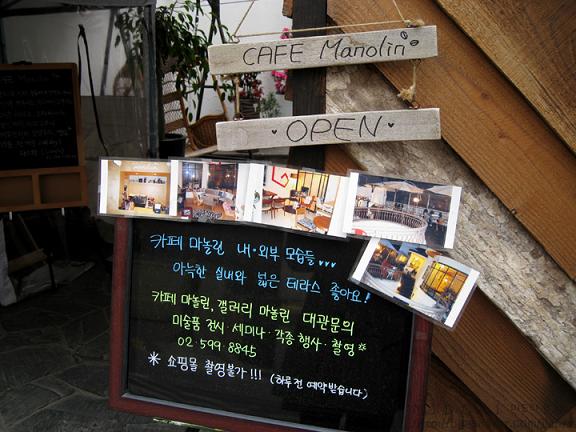 CAFE Manolin
OPEN
카페 마놀린 내·외부 모습들 ♥♥♥
아늑한 실내와 넓은 테라스 좋아요!
카페 마놀린, 갤러리 마놀린 대관문의
미술품 전시·세미나·각종 행사·촬영 *
02·599·8845
* 쇼핑몰 촬영불가!!! (하루 전 예약받습니다)